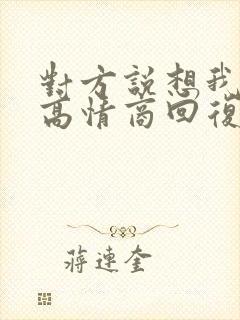 對方説想我
高情商回復
蔣連奎